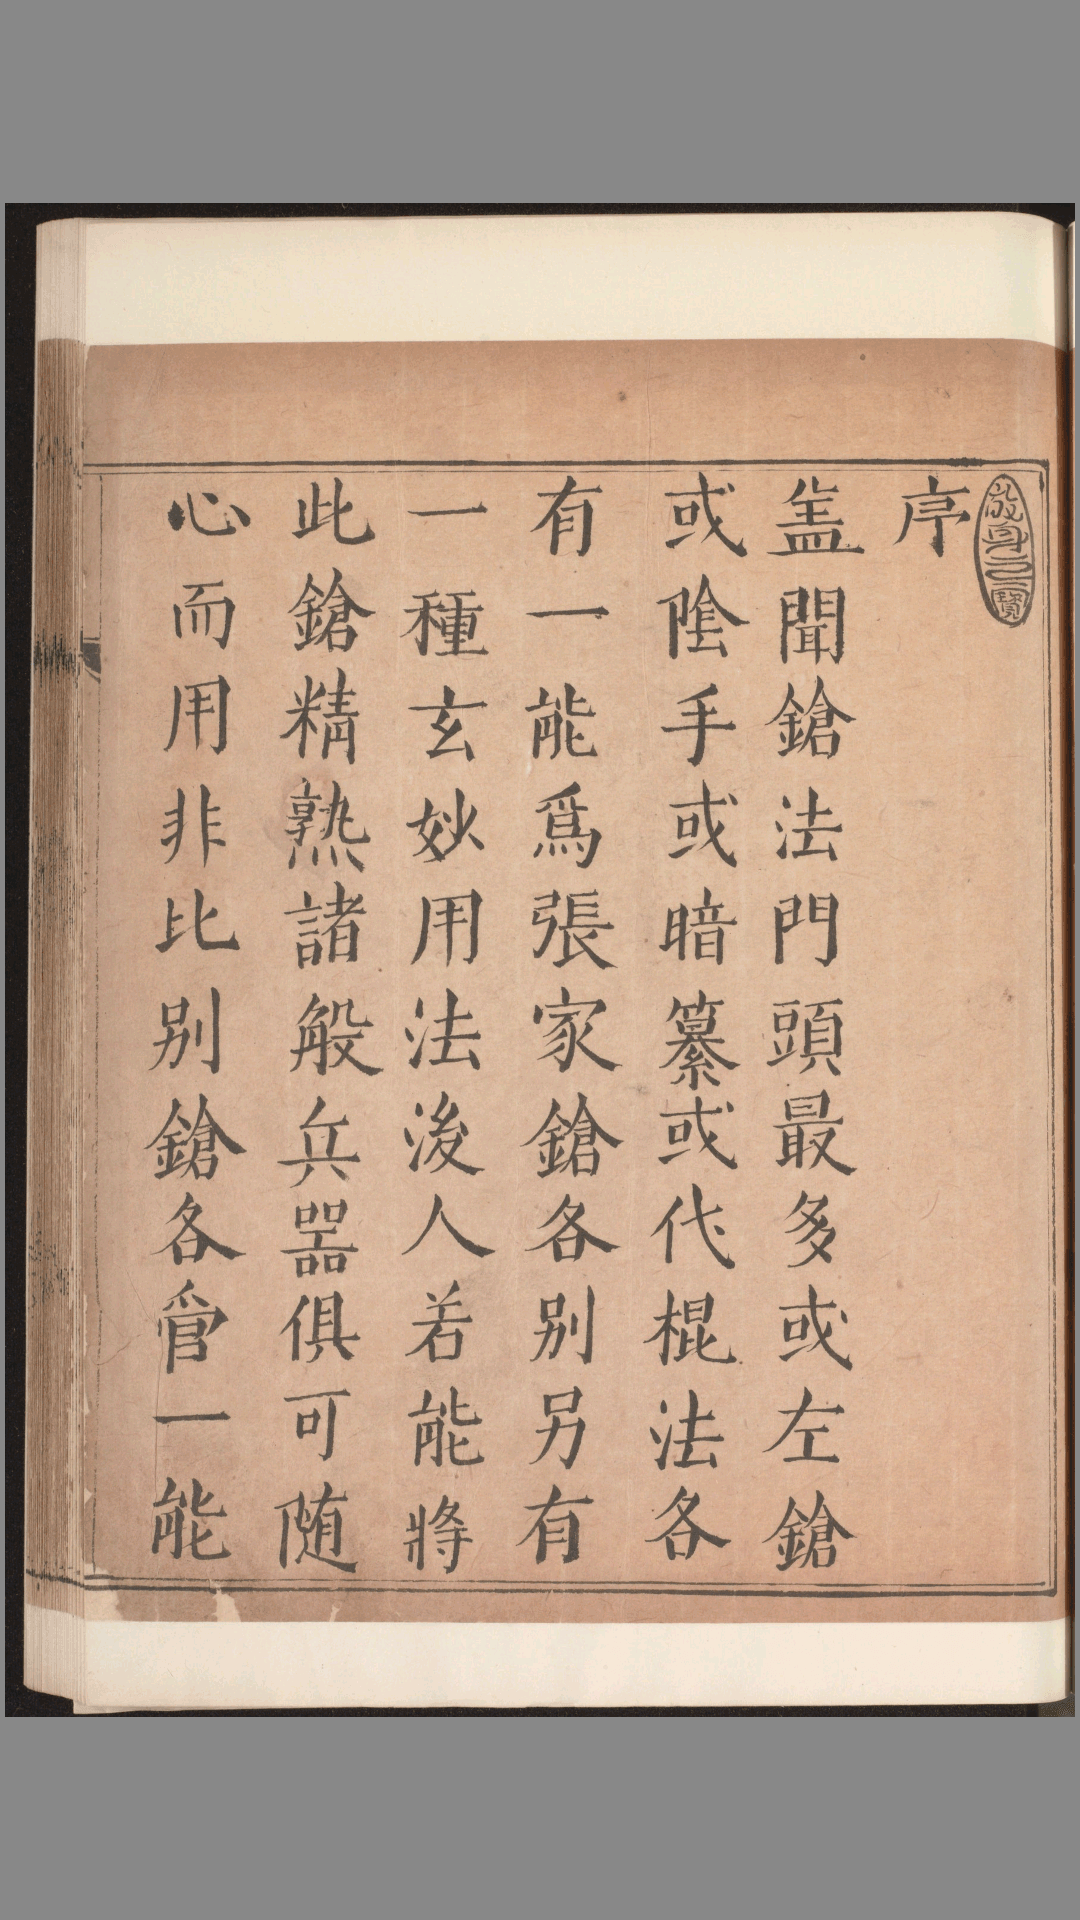 序
盖聞鎗法門頭最多或左鎗
或陰手或暗纂或代棍法各
有一能爲張家鎗各别另有
一種玄妙用法後人若能將
此鎗精熟諸般兵器俱可随
心而用非比别鎗各管一能